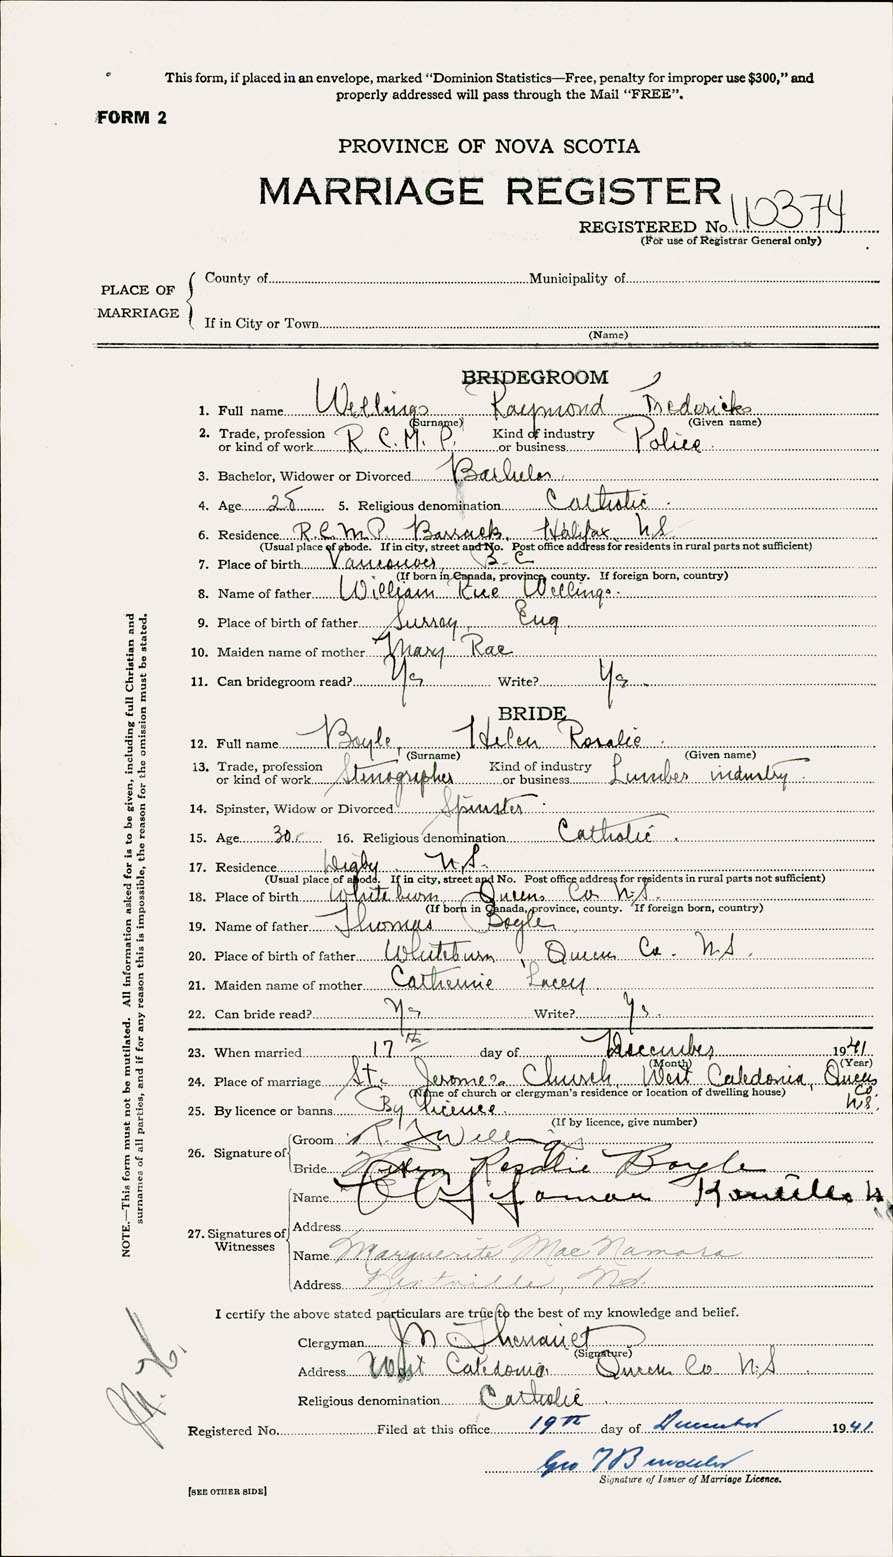 This form, if placed in an envelope, marked “Dominion Statistics—Free, penalty for improper use $300,” and
properly addressed will pass through the Mail “FREE”.
FORM 2
PROVINCE OF NOVA SCOTIA
MARRIAGE REGISTER
REGISTERED No. 110374
(For use of Registrar General only)
PLACE OF MARRIAGE
County of Municipality of
If in City or Town
(Name)
BRIDEGROOM
1. Full name Wellings Raymond Fredericks
(Surname) (Given name)
2. Trade, profession or kind of work R.C.M.P. Kind of industry or business Police
3. Bachelor, Widower or Divorced Bachelor
4. Age 28 5. Religious denomination Catholic
6. Residence R.C.M.P. Barracks, Halifax N.S.
(Usual place of abode. If in city, street and No. Post office address for residents in rural parts not sufficient)
7. Place of birth Vancouver B.C.
(If born in Canada, province, county. If foreign born, country)
8. Name of father William Wellings
9. Place of birth of father Surrey, Eng
10. Maiden name of mother Mary Rae
11. Can bridegroom read? Yes Write? Yes
BRIDE
12. Full name Boyle, Helen Rosalie
(Surname) (Given name)
13. Trade, profession or kind of work Stenographer Kind of industry or business Lumber industry
14. Spinster, Widow or Divorced Spinster
15. Age 30 16. Religious denomination Catholic
17. Residence Digby N.S.
(Usual place of abode. If in city, street and No. Post office address for residents in rural parts not sufficient)
18. Place of birth Whiteburn Queens Co N.S.
(If born in Canada, province, county. If foreign born, country)
19. Name of father Thomas Boyle
20. Place of birth of father Whiteburn, Queens Co. N.S.
21. Maiden name of mother Catherine Lacey
22. Can bride read? Yes Write? Yes
23. When married 17th day of December 1941
(Month) (Year)
24. Place of marriage St. Jerome's Church, West Caledonia, Queens Co. N.S.
(Name of church or clergyman's residence or location of dwelling house)
25. By licence or banns By licence
(If by licence, give number)
26. Signature of
Groom R. F. Wellings
Bride Helen Rosalie Boyle
27. Signatures of Witnesses
Name
Address
Name Marguerite MacNamara
Address Kentville, N.S.
I certify the above stated particulars are true to the best of my knowledge and belief.
Clergyman
(Signature)
Address West Caledonia Queens Co N.S
Religious denomination Catholic
Registered No. Filed at this office 19th day of December 1941
Geo
Signature of Issuer of Marriage Licence.
[SEE OTHER SIDE]
NOTE.—This form must not be mutilated. All information asked for is to be given, including full Christian and
surnames of all parties, and if for any reason this is impossible, the reason for the omission must be stated.